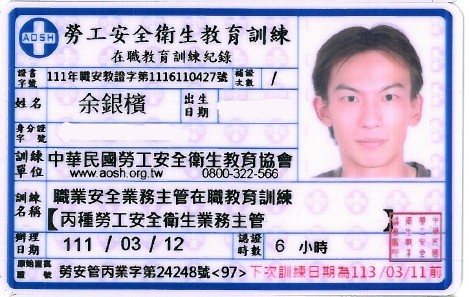 AOSH
勞工安全衛生教育訓練
在職教育訓練紀錄
證書字號 111年職安教證字第1116110427號 補證次數 /
姓名 余銀檳 出生日期
身分證號
訓練單位 中華民國勞工安全衛生教育協會
www.aosh.org.tw 0800-322-566
訓練名稱 職業安全業務主管在職教育訓練
【丙種勞工安全衛生業務主管】
辦理日期 111 / 03 / 12 認證時數 6 小時
原始證書字號 勞安管丙業字第24248號<97> 下次訓練日期為113 /03/11前